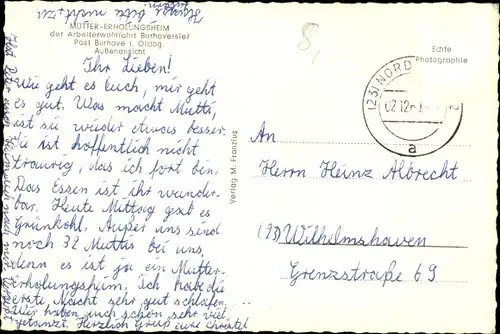 MÜTTER-ERHOLUNGSHEIM
der Arbeiterwohlfahrt Burhaversiel
Post Burhave i. Oldbg.
Außenansicht
Echte
Photographie
(23) NORD
02.12
a
Ihr Lieben!
Wie geht es Euch, mir geht
es gut. Was macht Mutti,
ist sie wieder etwas besser.
Sie ist hoffentlich nicht
traurig, das ich fort bin.
Das Essen ist ihr wunder-
bar. Heute Mittag gab es
Grünkohl. Außer uns sind
noch 32 Muttis bei uns,
denn es ist ja ein Mütter-
erholungsheim, ich habe die
erste Nacht sehr gut schlafen,
Wir haben auch schön sehr viel
getanzt. Herzlich Grüß eure Christel
Verlag M. Franzius
An
Herrn Heinz Albrecht
(23) Wilhelmshaven
Grenzstraße 69